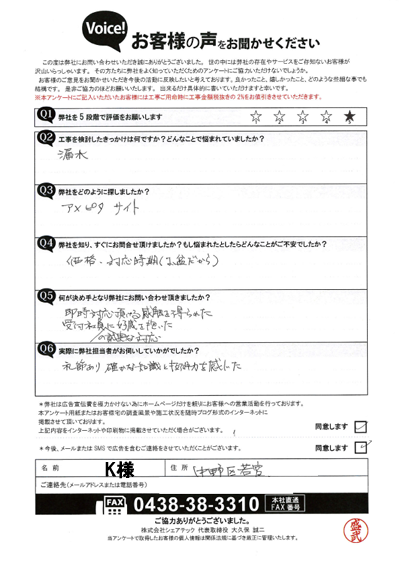 Voice!
お客様の声をお聞かせください
この度は弊社にお問い合わせいただき誠にありがとうございました。世の中には弊社の存在やサービスをご存知ないお客様が
沢山いらっしゃいます。その方たちに弊社をよく知っていただくためのアンケートにご協力いただけないでしょうか。
お客様のご意見をお聞かせいただき今後の活動に反映したいと考えております、良かったこと、嬉しかったこと、どのような些細な事でも
結構です。是非ご協力のほどお願いいたします。出来るだけ具体的に書いていただけますと幸いです。
※本アンケートにご記入いただいたお客様には工事ご用命時に工事金額税抜きの2%をお値引きさせていただきます。
Q1 弊社を5段階で評価をお願いします ☆ ☆ ☆ ☆ ★
Q2 工事を検討したきっかけは何ですか?どんなことで悩まれていましたか?
漏水
Q3 弊社をどのように探しましたか?
アメピタ サイト
Q4 弊社を知り、すぐにお問合せ頂けましたか?もし悩まれたとしたらどんなことがご不安でしたか?
価格・対応時期(お盆だから)
Q5 何が決め手となり弊社にお問い合わせ頂きましたか?
即時対応頂ける感触を得られた
受付社員に好感を抱いた
の誠実な対応
Q6 実際に弊社担当者がお伺いしていかがでしたか?
礼節あり 確かな知識と技術力を感じた
*弊社は広告宣伝費を極力かけない為にホームページだけを頼りにお客様への営業活動を行っております。
本アンケート用紙またはお客様宅の調査風景や施工状況を随時ブログ形式のインターネットに
掲載させて頂いております。
上記内容をインターネットや印刷物に掲載させていただく場合がございます。
同意します ✓
*今後、メールまたはSMSで広告を含むご連絡をさせていただくことがございます。
同意します ✓
名前 K様 住所 中野区若宮
ご連絡先(メールアドレスまたは電話番号)
FAX 0438-38-3310 本社直通 FAX番号
ご協力ありがとうございました。
株式会社シェアテック 代表取締役 大久保 誠二
当アンケートで取得したお客様の個人情報は関係法規に基づき厳正に管理いたします。